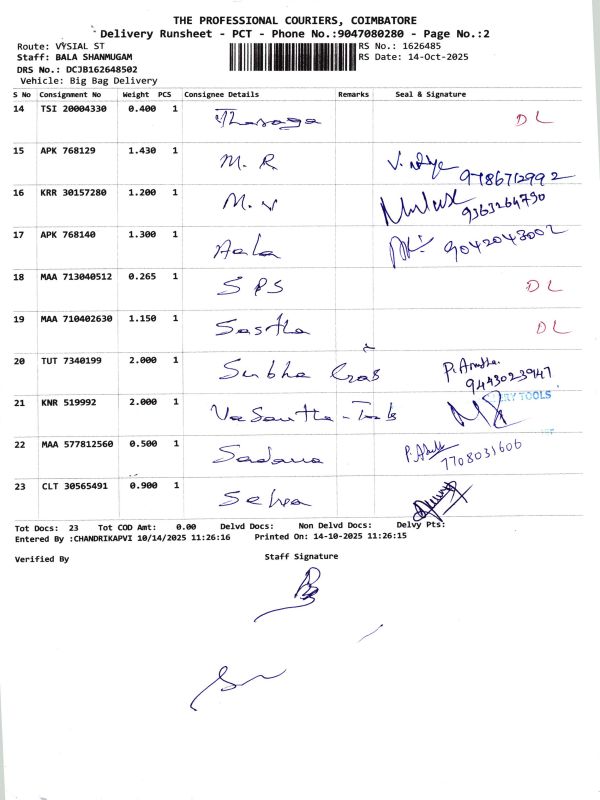 THE PROFESSIONAL COURIERS, COIMBATORE
Delivery Runsheet - PCT - Phone No.:9047080280 - Page No.:2
Route: VYSIAL ST RS No.: 1626485
Staff: BALA SHANMUGAM RS Date: 14-Oct-2025
DRS No.: DCJB162648502
Vehicle: Big Bag Delivery
S No Consignment No Weight PCS Consignee Details Remarks Seal & Signature
14 TSI 20004330 0.400 1 DL
15 APK 768129 1.430 1 M. R. V. Vidya 9786712992
16 KRR 30157280 1.200 1 M. V 9363264790
17 APK 768140 1.300 1 9042043002
18 MAA 713040512 0.265 1 SPS DL
19 MAA 710402630 1.150 1 Sastha DL
20 TUT 7340199 2.000 1 Subha P. 9443023947
21 KNR 519992 2.000 1 Vasantha - TOOLS
22 MAA 577812560 0.500 1 Sadana 7708031606
23 CLT 30565491 0.900 1 Selva
Tot Docs: 23 Tot COD Amt: 0.00 Delvd Docs: Non Delvd Docs: Delvy Pts:
Entered By :CHANDRIKAPVI 10/14/2025 11:26:16 Printed On: 14-10-2025 11:26:15
Verified By Staff Signature